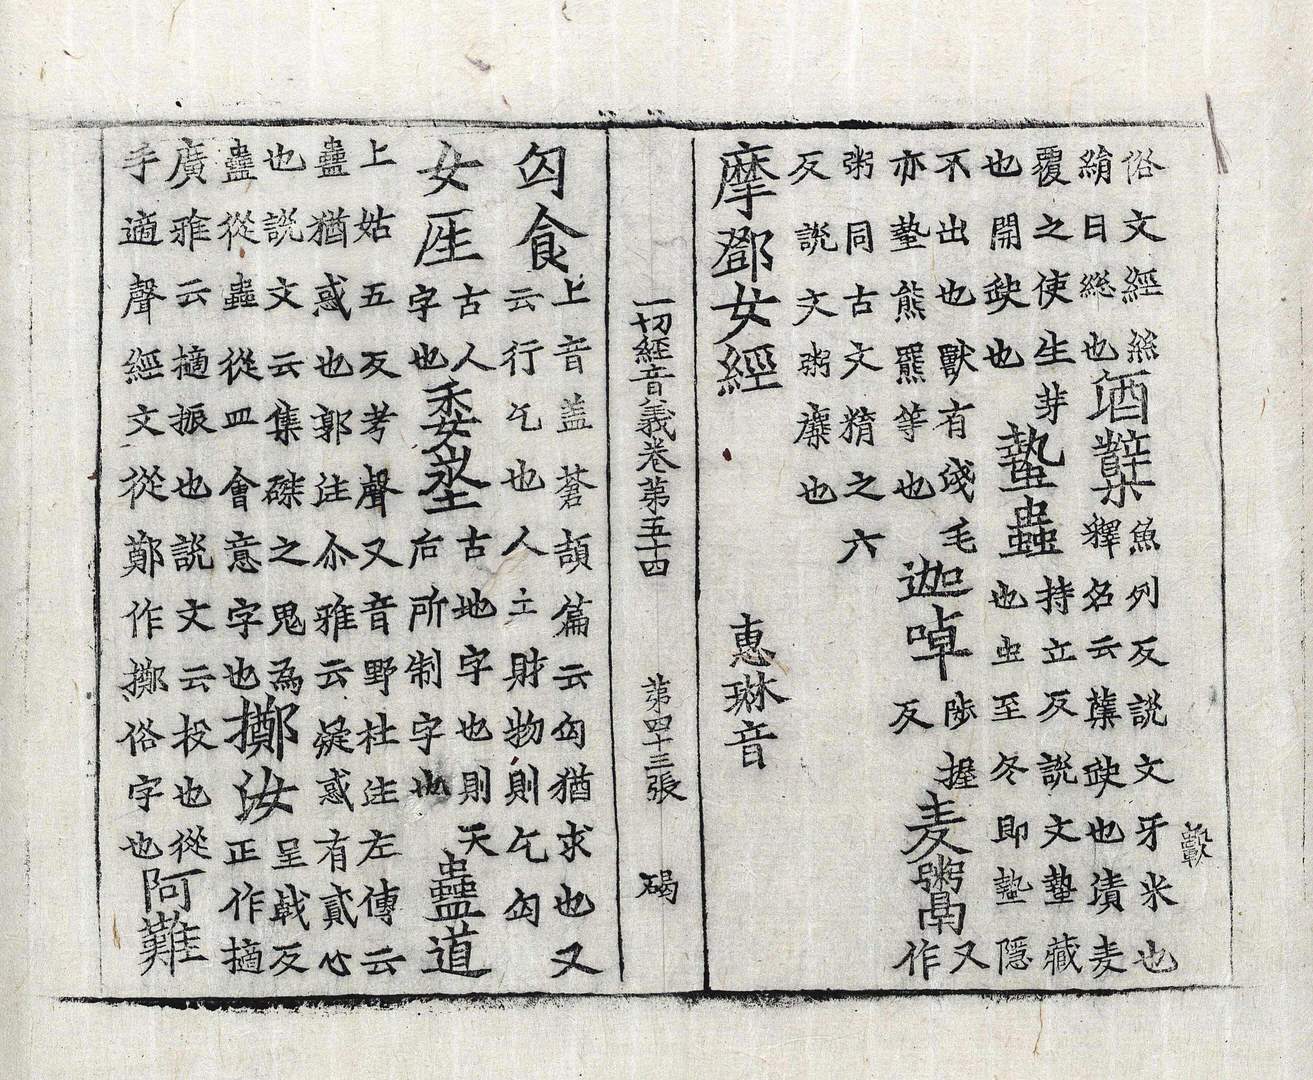 俗文經絲
絹曰緫也
酒糱
魚列反說文牙米也
釋名云糱缺也漬麦
覆之使生芽
也開缺也
蟄蟲
持立反說文蟄藏
也虫至冬即蟄隱
不出也獸有淺毛
亦蟄熊羆等也
迦啅
陟握
反
麦鬻
又
作
粥同古文精之六
反說文粥糜也
摩鄧女經 惠琳音
一切經音義卷苐五十四 苐四十三張 碣
匃食
上音盖蒼頡篇云匃猶求也又
云行乞也人士財物則乞匃
女𤯔
古人
字也
委埊
古地字也則天
后所制字也
蠱道
上姑五反考聲又音野杜注左傳云
蠱猶惑也郭注尒雅云疑惑有貳心
也說文云集磔之鬼為
蠱從蟲從皿會意字也
擲汝
呈戟反
正作擿
廣雅云擿振也說文云投也從
手適聲經文從鄭作擲俗字也
阿難